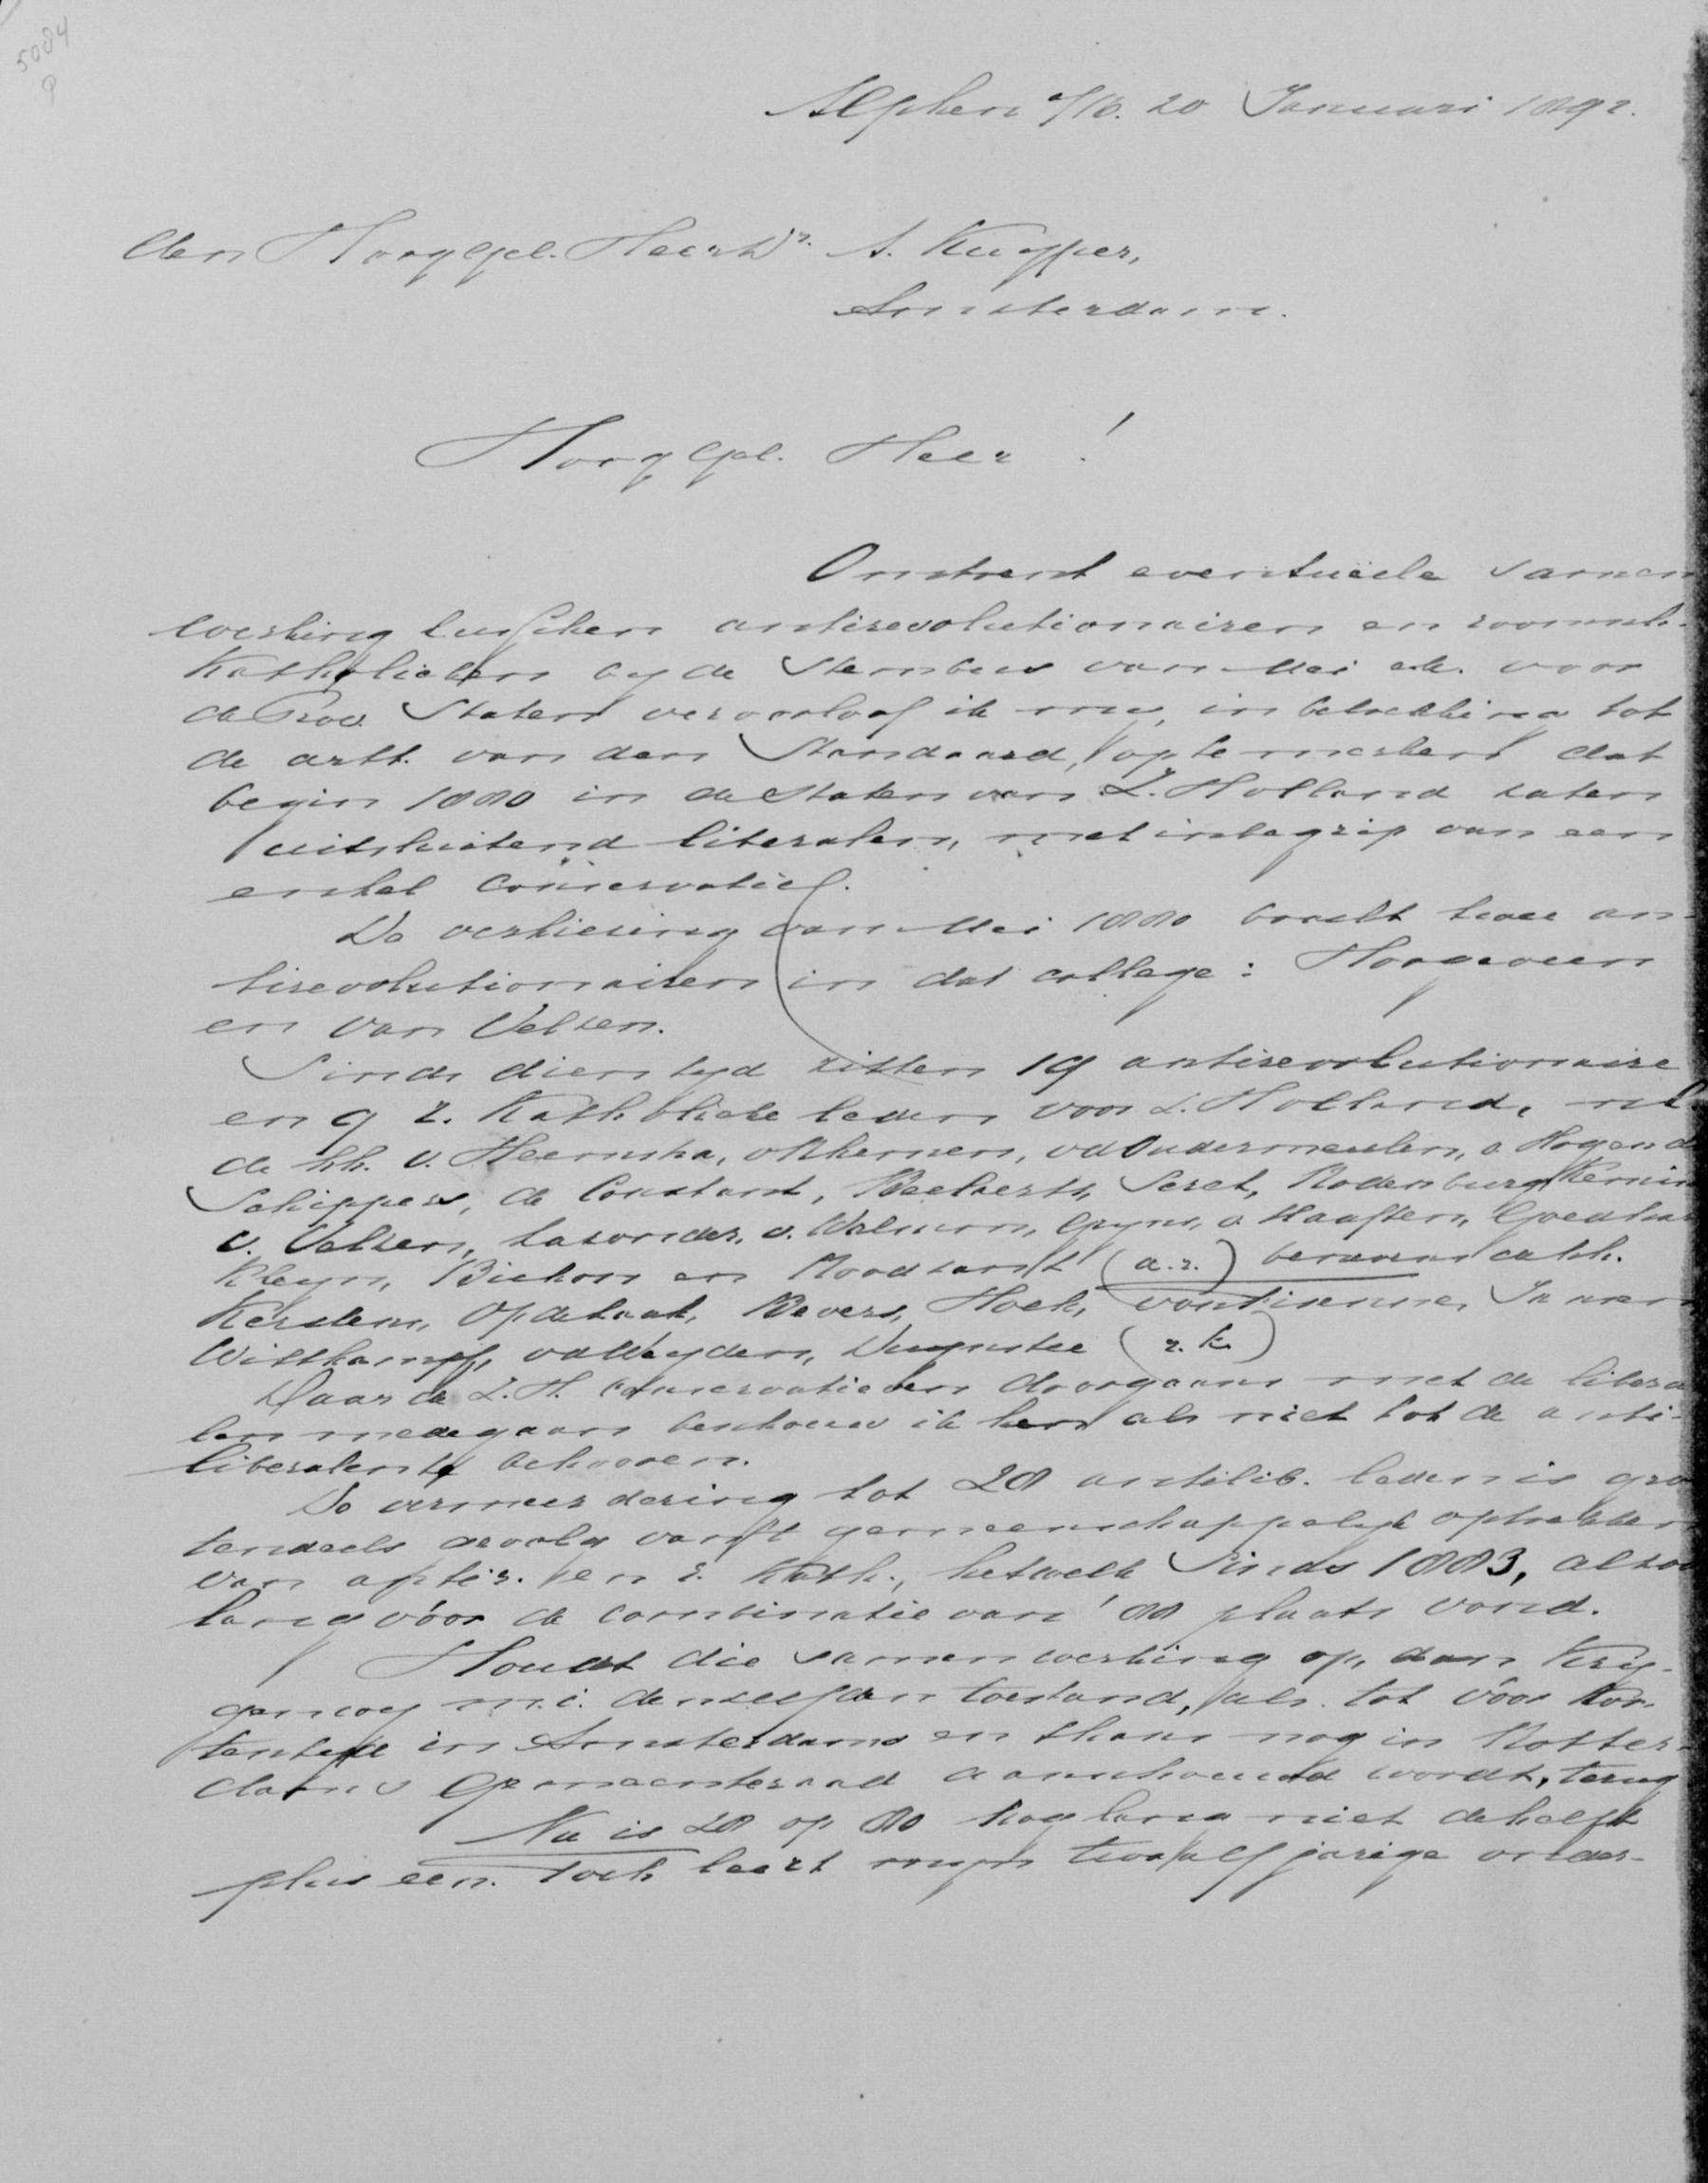 5084
Alphen a/R. 20 Januari 1892.
den HoogGel. Heer Dr. A. Kuyper,
Amsterdam.
HoogGel. Heer!
Omtrent eventuëele samen
werking tusschen antirevolutionairen en roomsch-
Katholieken by de Stembus van Mei e.k. voor
de Prov. Staten veroorloof ik my, in betrekking tot
de artt. van den Standaard, op te merken dat
begin 1880 in de Staten van Z. Holland zaten
uitsluitend liberalen, met inbegrip van een
enkel conservatief.
De verkiezing van Mei 1880 bracht twee an-
tirevolutionairen in dat college: Hoogeveen
en van Velzen.
Sinds dien tyd zitten 19 antirevolutionaire
en 9 r. Katholieke leden voor Z. Holland, nl
de hh. v. Heemstra, vdOudermeulen, v. Hogend
Schippers, de Constant, Beelaerts, Seret, Rodenburg,
v. Velzen, v. Haaften,
Kleyn, Bichon en Noodzant (a.r.) benevens de hh.
Kersten, Opdelaak, Bevers, Hoek,
Wittkampf, vdWeyden, (r.k.)
Daar de Z.H. conservatieven doorgaans met de libera
len medegaan beschouw ik hen als niet tot de anti-
liberalen te behooren.
De vermeerdering tot 28 antilib. leden is groo
tendeels gevolg van 't gemeenschappelyk optreden
van antir. en r. Kath., hetwelk sinds 1883, alzoo
lang vóór de combinatie van '88 plaats vond.
Houdt die samenwerking op, dan kry-
gen wy m.i. denzelfden toestand, als tot vóór kor-
ten tyd in Amsterdams en thans nog in Rotter-
dams Gemeenteraad aanschouwd wordt, terug
Nu is 28 op 80 nog lang niet de helft
plus een. Toch leert myn twaalfjarige onder-